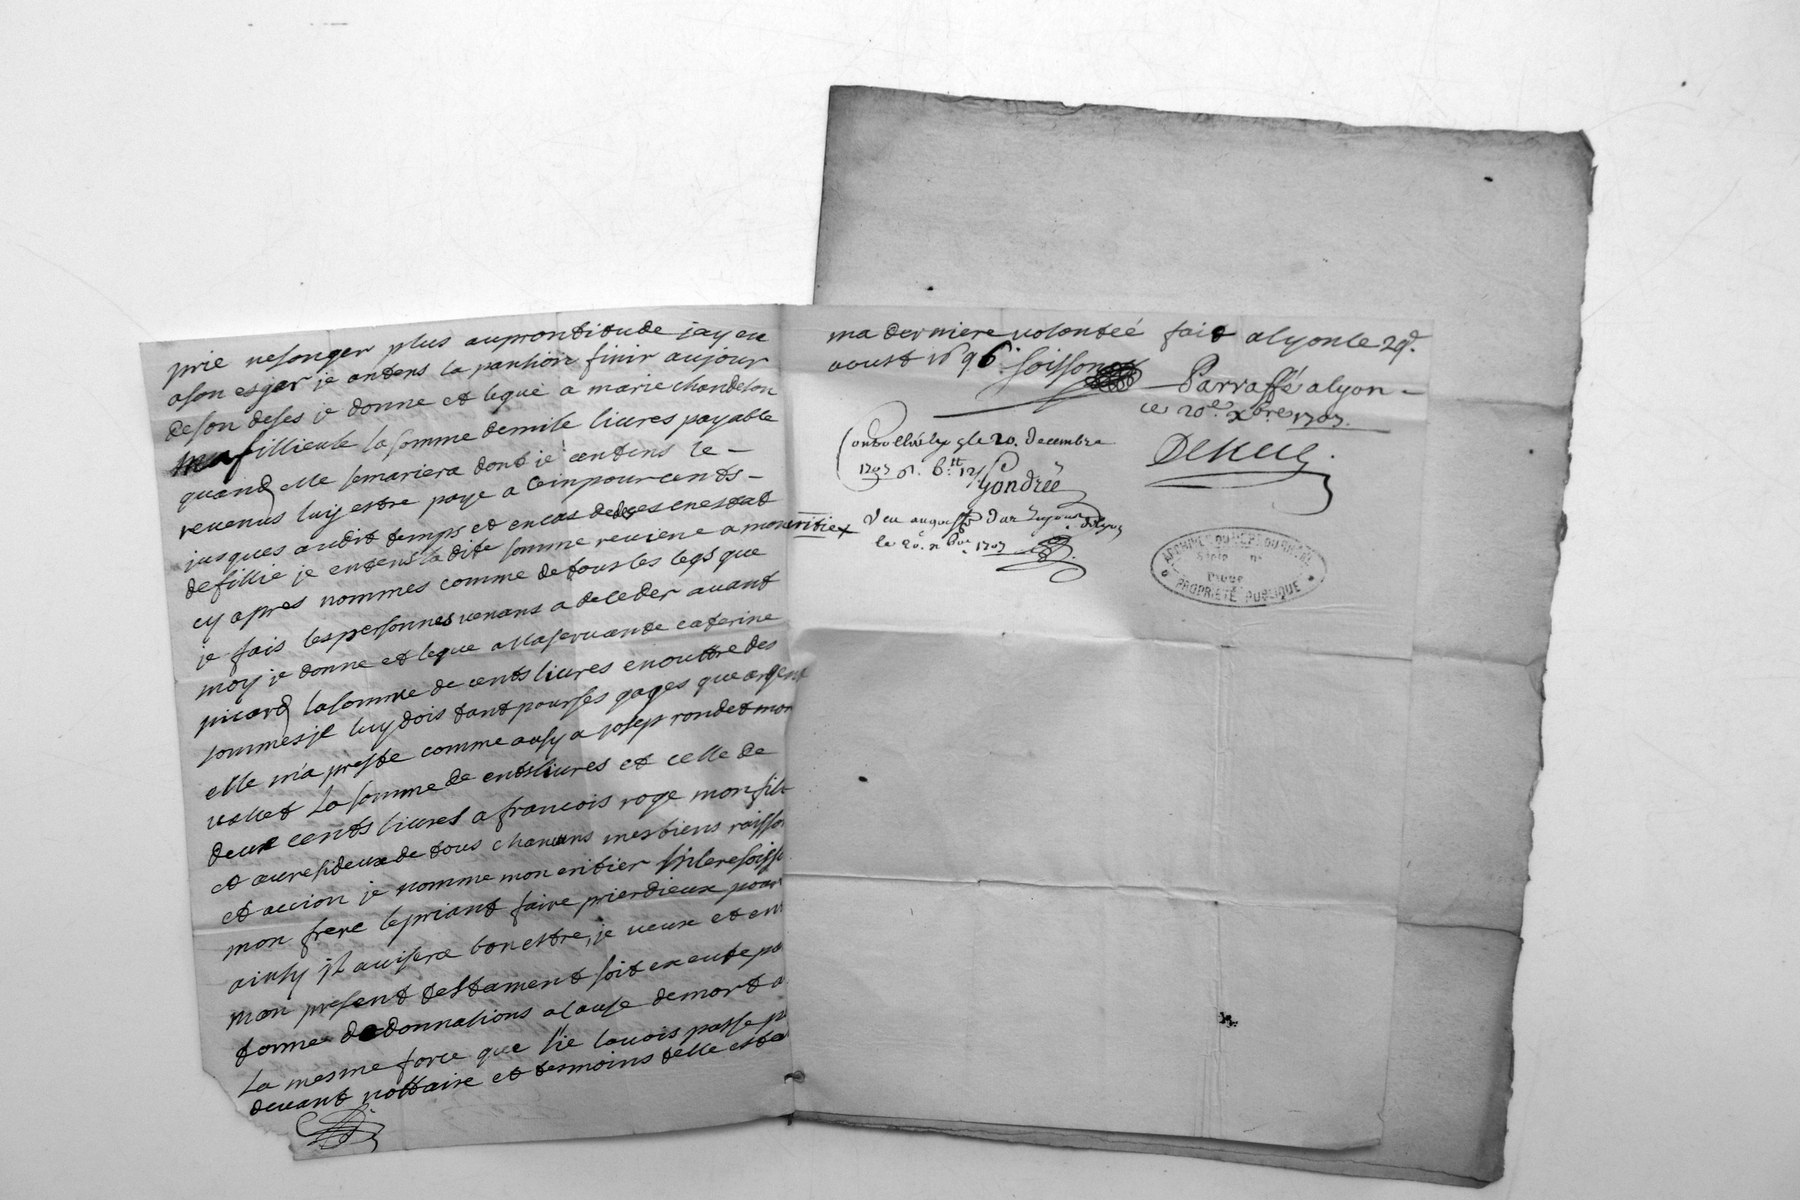 prie ne songer plus a prontitude jay eu
a son esgar je antens la panhion finir au jour
de son deses je donne et legue a marie chandelon
ma fillieule la somme de mile liures payable
quand elle se mariera dont je entens le -
reuenus luy estre paye a cein pour cents -
jusques audit temps et en cas de deses en estat
de fillie je entens la dite somme reuiene a mon eritiex
cy apres nommes comme de tous les legs que
je fais les personnes uenans a deceder auant
moy je donne et legue a Ma seruante caterine
picard la somme de cents liures en outtre des
sommes jl luy dois tant pour ses gages que argent
elle m'a preste comme ausy a josept rondet mon
vallet La somme de cents liures et celle de
deux cents liures a francois roge mon fili
et au resideux de tous chacuns mes biens raisson
et accion je nomme mon eritier hilere soisso
mon frere le priant faire prier dieux pour
ainsy jl auisera bon estre, je ueux et en
mon present testament soit execute pa
forme de donnations a cause de mort a
La mesme force que sie lauois passe p
deuant nottaire et tesmoins telle est
ma derniere uolonteé fait a lyon le 29e.
aoust 1696. soisson
Parraffé a lyon -
ce 20e. xbre 1707.
Controllé a Lyon le 20. decembre
1707
Gondreé
le 20e xbre 1707
ARCHIVES DU DEPT DU RHONE
PROPRIETE PUBLIQUE